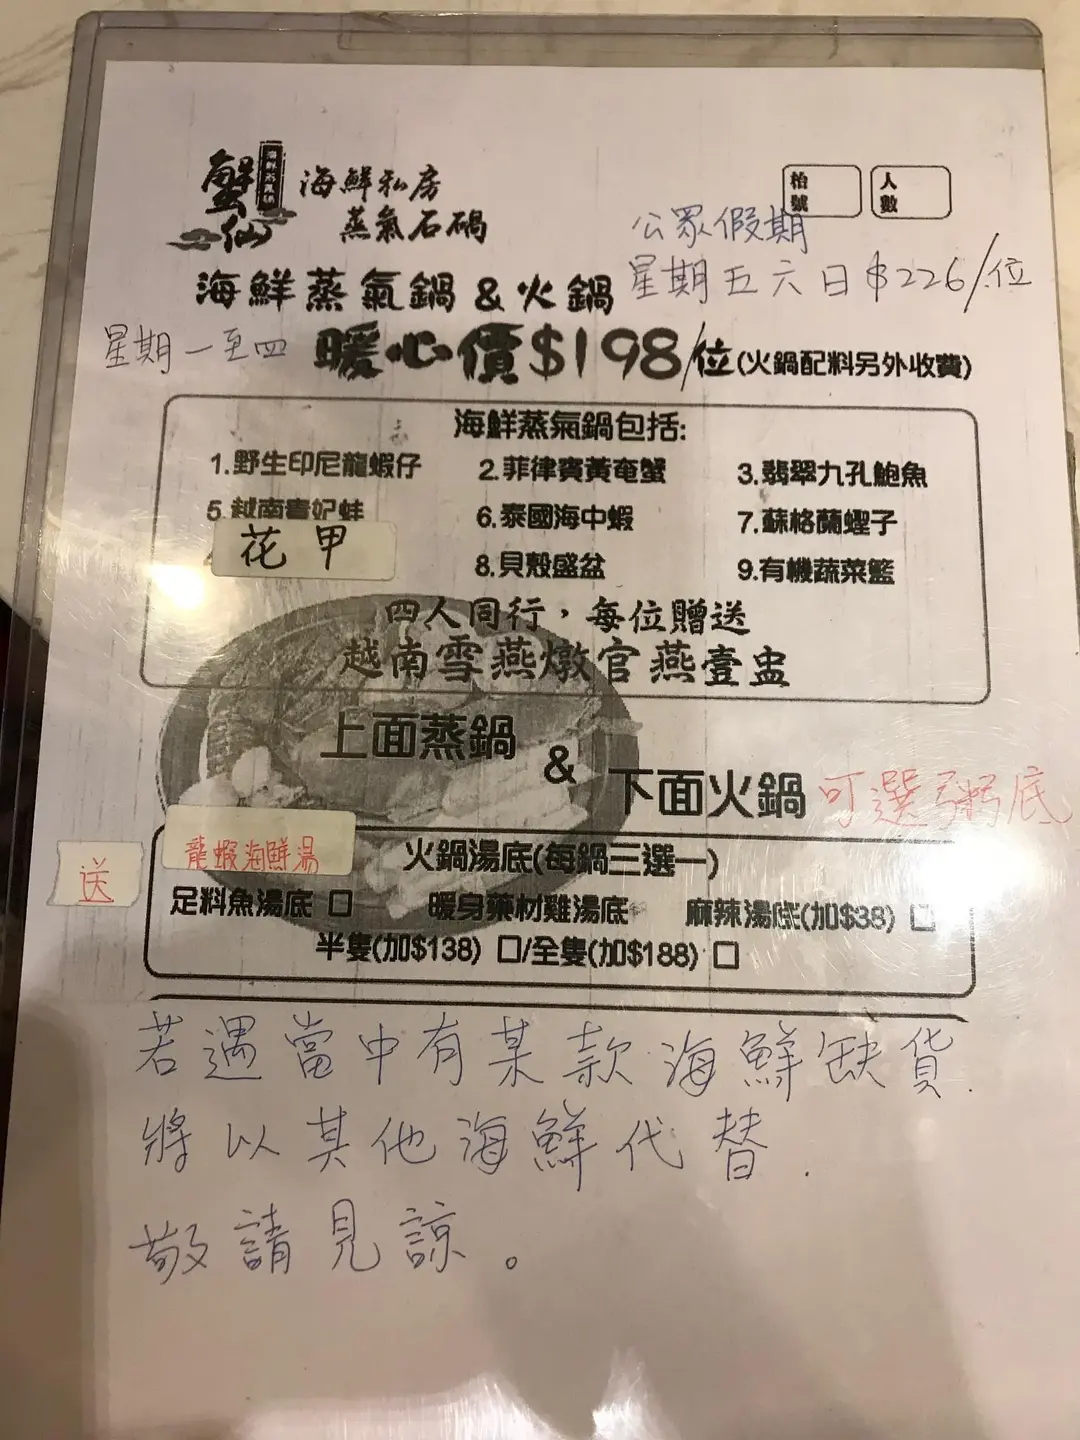 蟹仙
海鮮私房
蒸氣石鍋
枱號
人數
公眾假期
星期五六日$226/位
海鮮蒸氣鍋&火鍋
星期一至四
暖心價$198/位(火鍋配料另外收費)
海鮮蒸氣鍋包括:
1.野生印尼龍蝦仔 2.菲律賓黃奄蟹 3.翡翠九孔鮑魚
5.越南貴妃蚌 6.泰國海中蝦 7.蘇格蘭蟶子
花甲
8.貝殼盛盆 9.有機蔬菜籃
四人同行，每位贈送
越南雪燕燉官燕壹盅
上面蒸鍋
&
下面火鍋 可選粥底
送 龍蝦海鮮湯 火鍋湯底(每鍋三選一)
足料魚湯底 □ 暖身藥材雞湯底 麻辣湯底(加$38) □
半隻(加$138) □/全隻(加$188) □
若遇當中有某款海鮮缺貨.
將以其他海鮮代替.
敬請見諒。